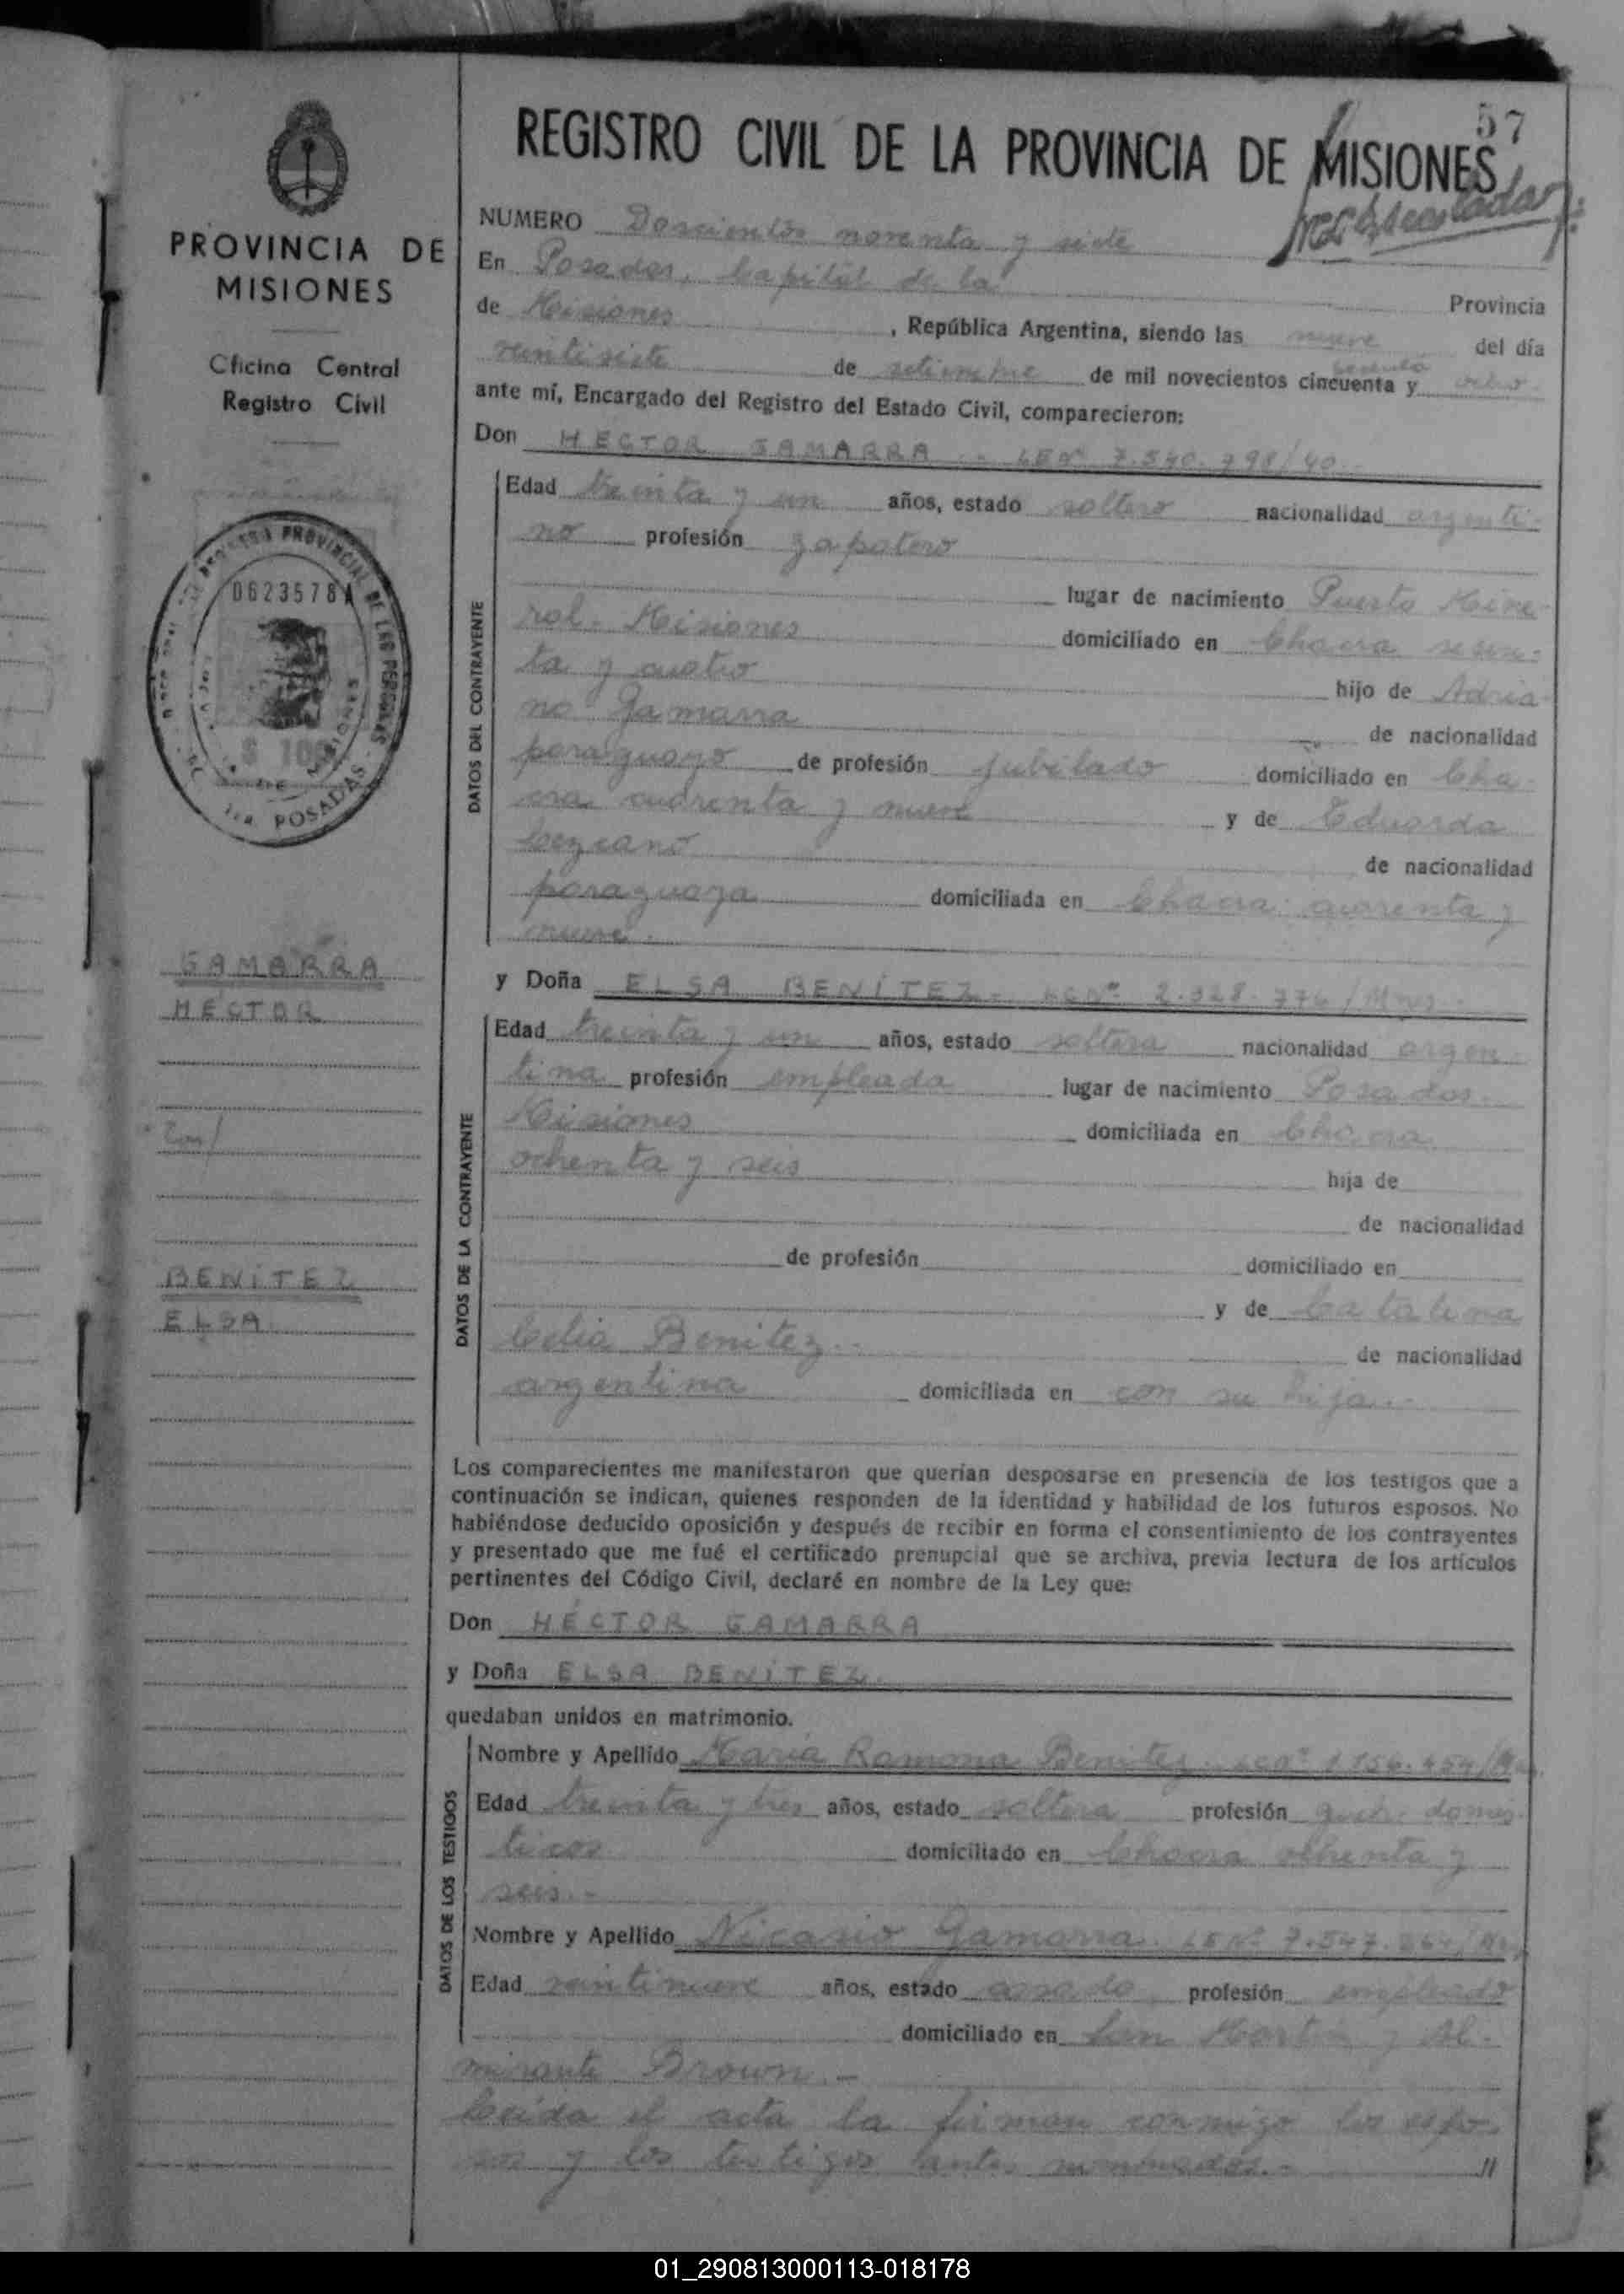 57
REGISTRO CIVIL DE LA PROVINCIA DE MISIONES
PROVINCIA DE
MISIONES
Oficina Central
Registro Civil
REGISTRO PROVINCIAL DE LAS PERSONAS
0623578A
$ 100
POSADAS
GAMARRA
HECTOR
Con/
BENÍTEZ
ELSA
NUMERO Doscientos noventa y siete
En Posadas, Capital de la Provincia
de Misiones, República Argentina, siendo las nueve del día
veintisiete de setiembre de mil novecientos cincuenta y sesenta ocho.
ante mí, Encargado del Registro del Estado Civil, comparecieron:
Don HECTOR GAMARRA.- LE Nº 7.540.798/40.-
DATOS DEL CONTRAYENTE
Edad treinta y un años, estado soltero nacionalidad argenti-
no profesión zapatero
lugar de nacimiento Puerto Mine-
ral- Misiones domiciliado en Chacra sesen-
ta y cuatro hijo de Adria-
no Gamarra de nacionalidad
paraguayo de profesión jubilado domiciliado en Cha-
cra cuarenta y nueve y de Eduarda
Lezcano de nacionalidad
paraguaya domiciliada en Chacra cuarenta y
nueve.
y Doña ELSA BENÍTEZ.- LC Nº 2.328.776/Mnes.-
DATOS DE LA CONTRAYENTE
Edad treinta y un años, estado soltera nacionalidad argen-
tina profesión empleada lugar de nacimiento Posadas.
Misiones domiciliada en Chacra
ochenta y seis hija de
de nacionalidad
de profesión domiciliado en
y de Catalina
Celia Benitez.- de nacionalidad
argentina domiciliada en con su hija.-
Los comparecientes me manifestaron que querían desposarse en presencia de los testigos que a
continuación se indican, quienes responden de la identidad y habilidad de los futuros esposos. No
habiéndose deducido oposición y después de recibir en forma el consentimiento de los contrayentes
y presentado que me fué el certificado prenupcial que se archiva, previa lectura de los artículos
pertinentes del Código Civil, declaré en nombre de la Ley que:
Don HÉCTOR GAMARRA
y Doña ELSA BENÍTEZ.
quedaban unidos en matrimonio.
DATOS DE LOS TESTIGOS
Nombre y Apellido María Ramona Benitez. LC Nº
Edad treinta y tres años, estado soltera profesión queh. domés-
ticos domiciliado en Chacra ochenta y
seis.-
Nombre y Apellido Nicasio Gamarra. LE Nº
Edad veintinueve años, estado casado profesión empleado
domiciliado en San Martín y Al-
mirante Brown.-
Leida el acta la firman conmigo los espo-
sos y los testigos antes nombrados.- //
01_290813000113-018178